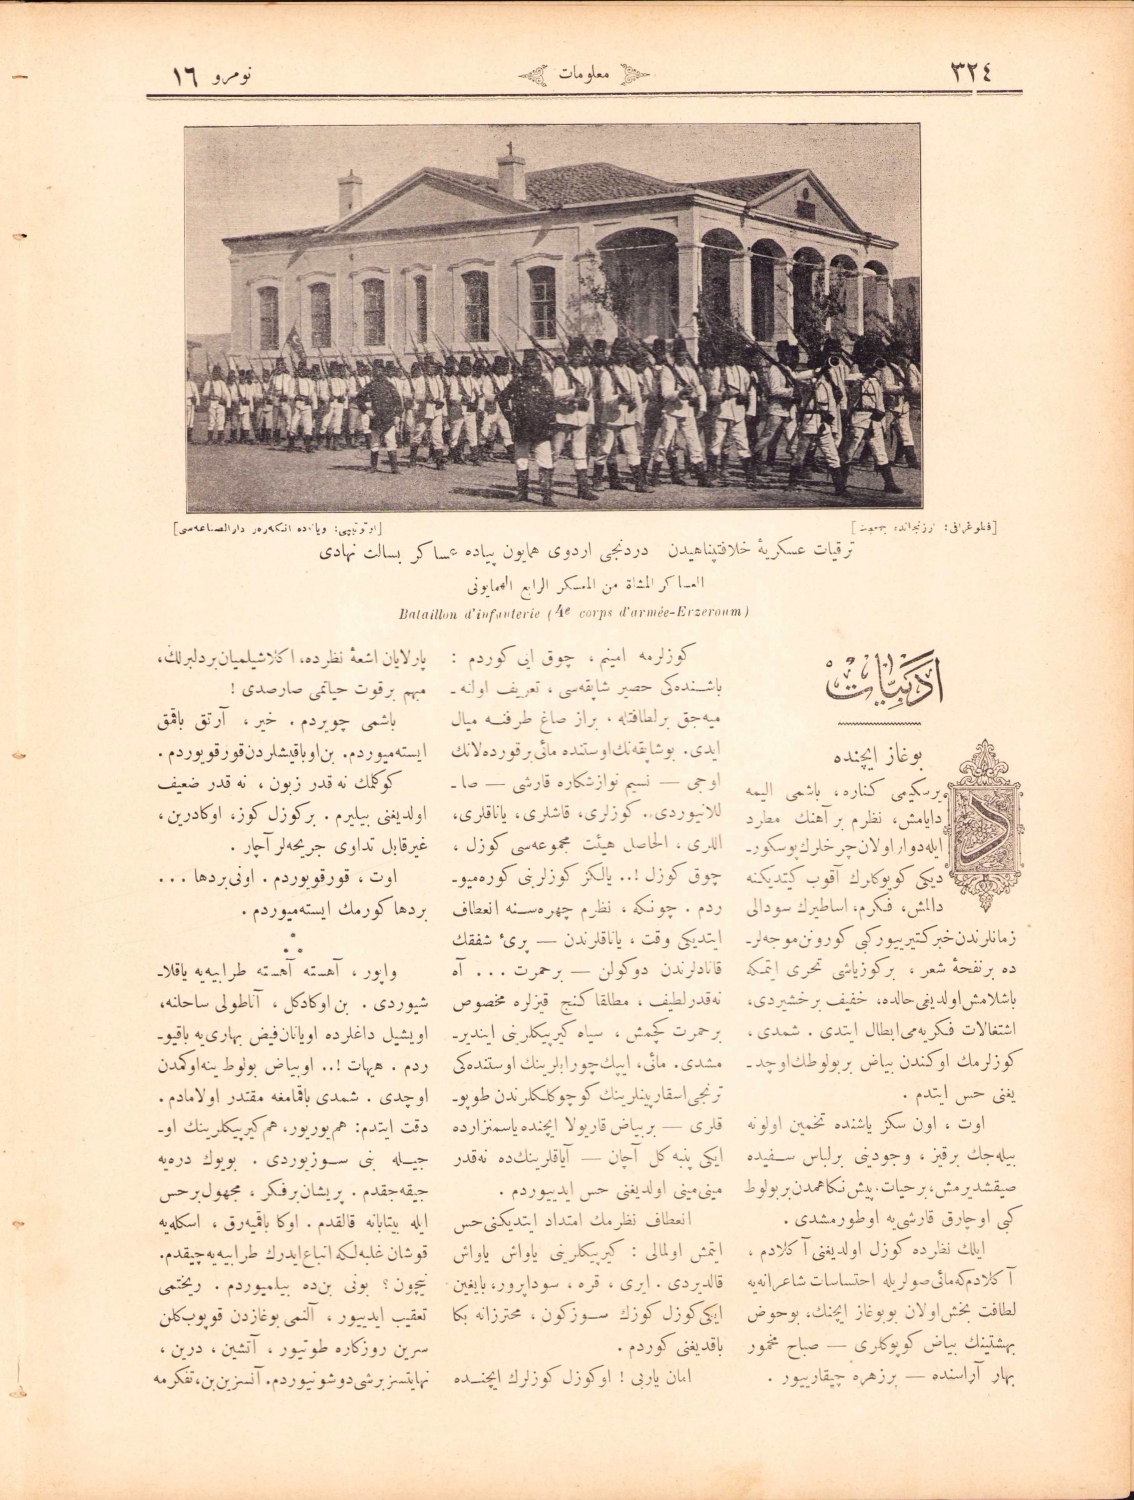 ٣٢٤
معلومات
نومرو ١٦
[فطوغرافی: ارزنجانده جمعيت]
[اوتوتیپی: ویانه‌ده آنكه‌رر دارالصناعه‌سی]
ترقيات عسكریهٔ خلافتپناهيدن دردنجی اردوی همايون پياده عساكر بسالت نهادی
العساكر المشاة من المعسكر الرابع الهمايونی
Bataillon d'infanterie (4e corps d'armée-Erzeroum)
ادبيات
بوغاز ايچنده
د
يرسكيمی كناره، باشمی اليمه
دايامش، نظرم بر آهنك مطرد
ايله دوار اولان چرخلرك پوسكور‌ـ
ديكی كوپوكلرك آقوب كيتديكنه
دالمش، فكرم، اساطيرك سودالی
زمانلرندن خبر كتيرييور كبی كورونن موجه‌لر‌ـ
ده برنفحهٔ شعر ، بركوزياشی تحری ايتمكه
باشلامش اولديغی حالده، خفيف برخشيردی،
اشتغالات فكريه‌می ابطال ايتدی . شمدی ،
كوزلرمك اوكندن بياض بربولوطك اوچد‌ـ
يغنی حس ايتدم .
اوت ، اون سكز ياشنده تخمين اولونه
بيله‌جك برقيز ، وجودينی برلباس سفيده
صيقشديرمش، برحيات، پيش نكاهمدن بر بولوط
كبی اوچارق قارشی‌يه اوطورمشدی .
ايلك نظرده كوزل اولديغنی آكلادم ،
آكلادم كه مائی صولريله احتساسات شاعرانه‌يه
لطافت بخش اولان بوبوغاز ايچنك، بوحوض
بهشتينك بياض كوپوكلری — صباح مخمور
بهار آراسنده — برزهره چيقارييور .
كوزلرمه امينم ، چوق ايی كوردم :
باشنده‌كی حصير شاپقه‌سی ، تعريف اولنه‌ـ
ميه‌جق برلطافتله ، براز صاغ طرفنه ميال
ايدی. بوشاپقه‌نك اوستنده مائی برقورده‌لانك
اوجی — نسيم نوازشكاره قارشی — صا‌ـ
للانيوردی.. كوزلری، قاشلری، ياناقلری،
اللری ، الحاصل هيئت مجموعه‌سی كوزل ،
چوق كوزل !.. يالكز كوزلرينی كوره‌ميو‌ـ
ردم . چونكه ، نظرم چهره‌سنه انعطاف
ايتديكی وقت ، ياناقلرندن — پریء شفقك
قانادلرندن دوكولن — برحمرت ... آه
نه‌قدر لطيف ، مطلقا كنج قيزلره مخصوص
برحمرت كچمش ، سياه كيرپيكلرينی ايندير‌ـ
مشدی. مائی، ايپك چورابلرينك اوستنده‌كی
ترنجی اسقارپينلرينك كوچوكلكلرندن طوپو‌ـ
قلری — بربياض قاريولا ايچنده ياسمنزارده
ايكی پنبه كل آچان — آياقلرينك‌ده نه‌قدر
مينی مينی اولديغنی حس ايدييوردم .
انعطاف نظرمك امتداد ايتديكنی حس
ايتمش اولمالی : كيرپيكلرينی ياواش ياواش
قالديردی . ايری ، قره ، سوداپرور، بايغين
ايكی كوزل كوزك سوزكون ، محترزانه بكا
باقديغنی كوردم .
امان ياربی ! اوكوزل كوزلرك ايچنده
پارلايان اشعهٔ نظرده، آكلاشيلميان بردلبرلك،
مبهم برقوت حياتمی صارصدی !
باشمی چويردم . خير ، آرتق باقمق
ايسته‌ميوردم. بن او باقيشلردن قورقويوردم .
كوكلمك نه قدر زبون ، نه قدر ضعيف
اولديغنی بيليرم . بركوزل كوز، اوكا درين ،
غيرقابل تداوی جريحه‌لر آچار .
اوت ، قورقويوردم . اونی بردها ...
بردها كورمك ايسته‌ميوردم .
واپور ، آهسته آهسته طرابيه‌يه ياقلا‌ـ
شيوردی . بن اوكا دكل ، آناطولی ساحلنه،
اويشيل داغلرده اويانان فيض بهاری‌يه باقيو‌ـ
ردم . هيهات !.. اوبياض بولوط ينه اوكمدن
اوچدی . شمدی باقمامغه مقتدر اولامادم .
دقت ايتدم: هم يوريور، هم كيرپيكلرينك او‌ـ
جيله بنی سوزيوردی . بويوك دره‌يه
چيقه‌جقدم . پريشان برفكر ، مجهول برحس
ايله بيتابانه قالقدم . اوكا باقميه‌رق ، اسكله‌يه
قوشان غلبه‌لكه اتباع ايدرك طرابيه‌يه چيقدم.
نيچون ؟ بونی بن‌ده بيلميوردم . ريختمی
تعقيب ايدييور ، آلنمی بوغازدن قوپوب كلن
سرين روزكاره طوتيور ، آتشين ، درين ،
نهايتسز برشی دوشونيوردم. آنسزين بن، تفكرمه